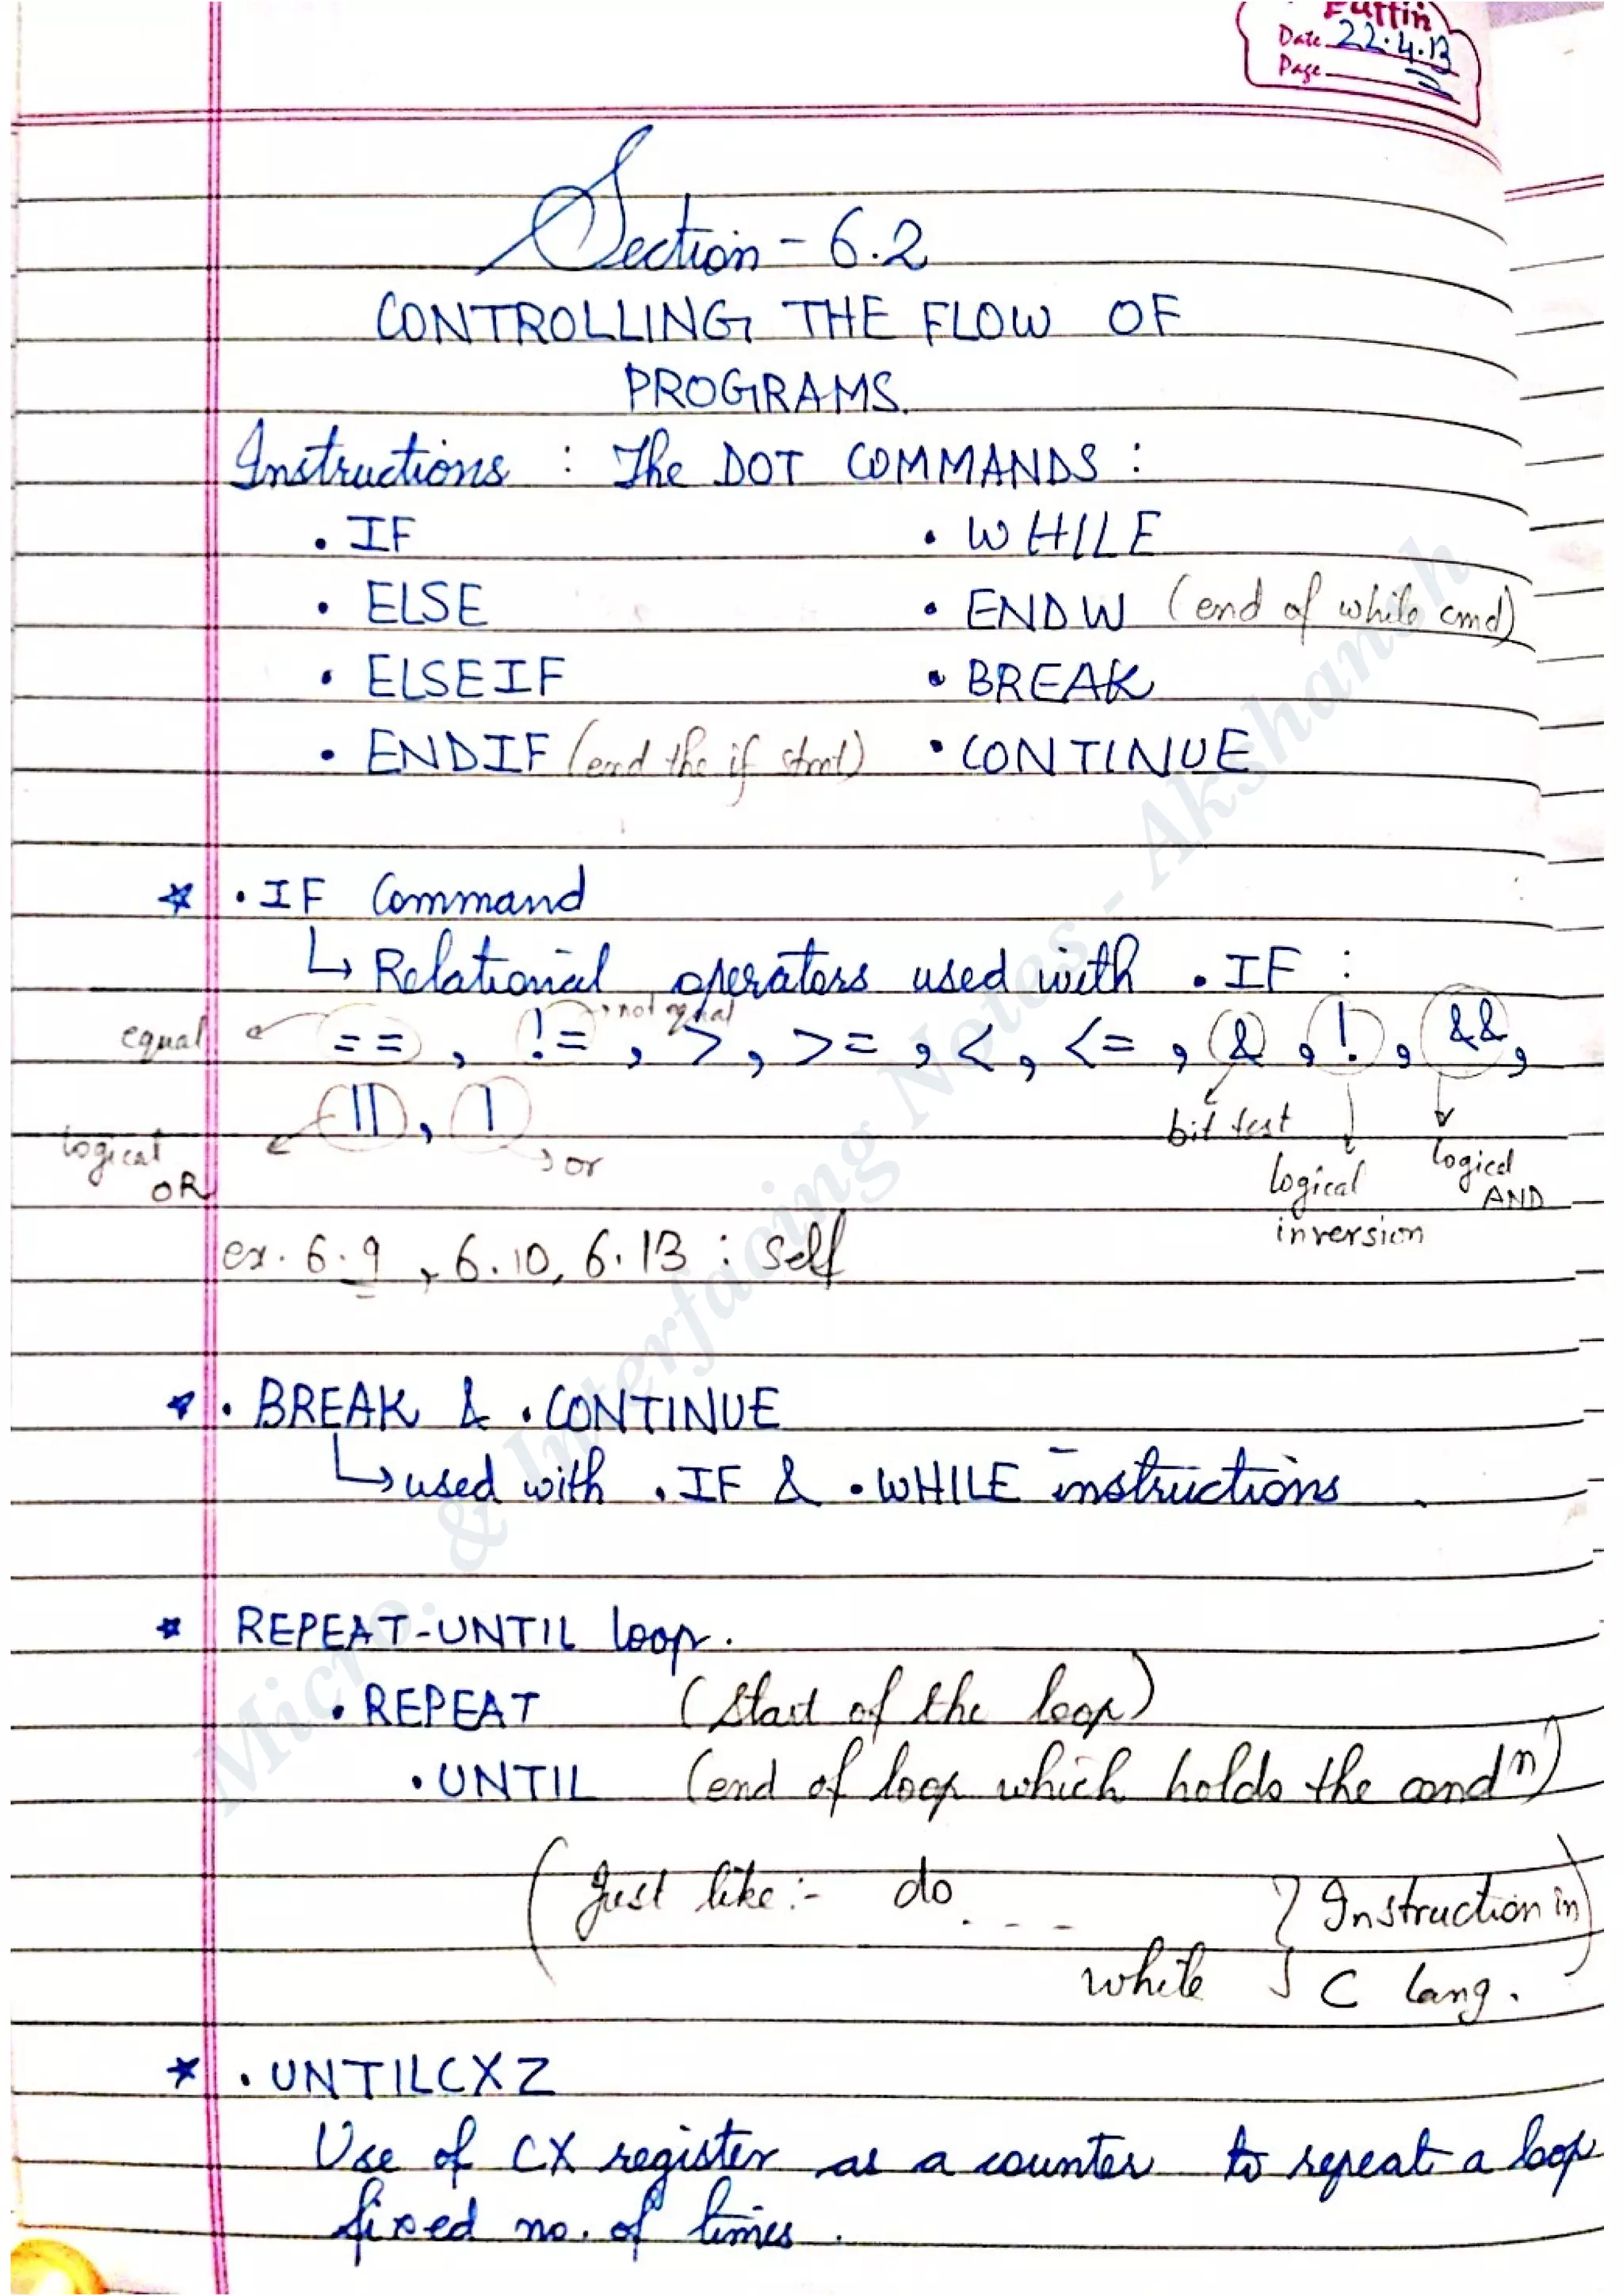 Puffin
Date 22.4.13
Page
Section - 6.2
CONTROLLING THE FLOW OF
PROGRAMS.
Instructions : The DOT COMMANDS :
• IF • WHILE
• ELSE • ENDW (end of while cmd)
• ELSEIF • BREAK
• ENDIF (end the if stmt) • CONTINUE
* .IF Command
↳ Relational operators used with .IF :
→ not equal
equal ← == , != , > , >= , < , <= , & , ! , && ,
|| , |
bit test
logical OR → or
logical inversion
logical AND
ex. 6.9 , 6.10, 6.13 : self
* .BREAK & .CONTINUE
↳ used with .IF & .WHILE instructions .
* REPEAT-UNTIL loop.
.REPEAT (start of the loop)
.UNTIL (end of loop which holds the condⁿ)
(Just like:- do . - - - } Instruction in)
while } C lang.
* .UNTILCXZ
Use of CX register as a counter to repeat a loop
fixed no. of times.
Micro. & Interfacing Notes - Akshansh